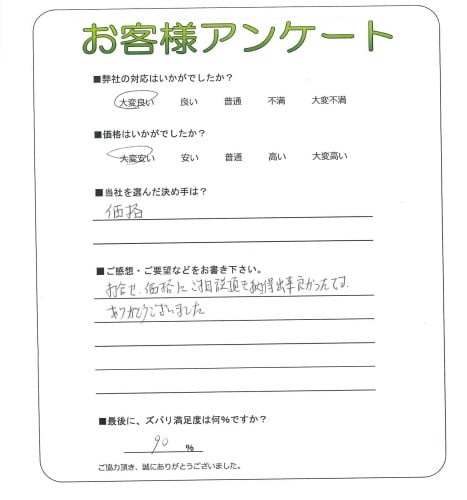 お客様アンケート
■弊社の対応はいかがでしたか?
大変良い 良い 普通 不満 大変不満
■価格はいかがでしたか?
大変安い 安い 普通 高い 大変高い
■当社を選んだ決め手は?
価格
■ご感想・ご要望などをお書き下さい。
価格に ご相談頂き納得出来良かったです.
ありがとうございました
■最後に、ズバリ満足度は何%ですか?
90 %
ご協力頂き、誠にありがとうございました。